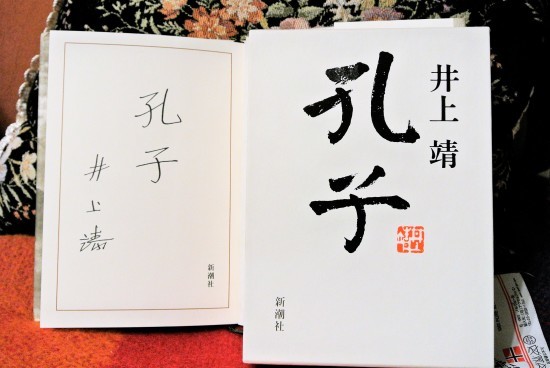 孔子
井上靖
新潮社
井上 靖
孔子
新潮社